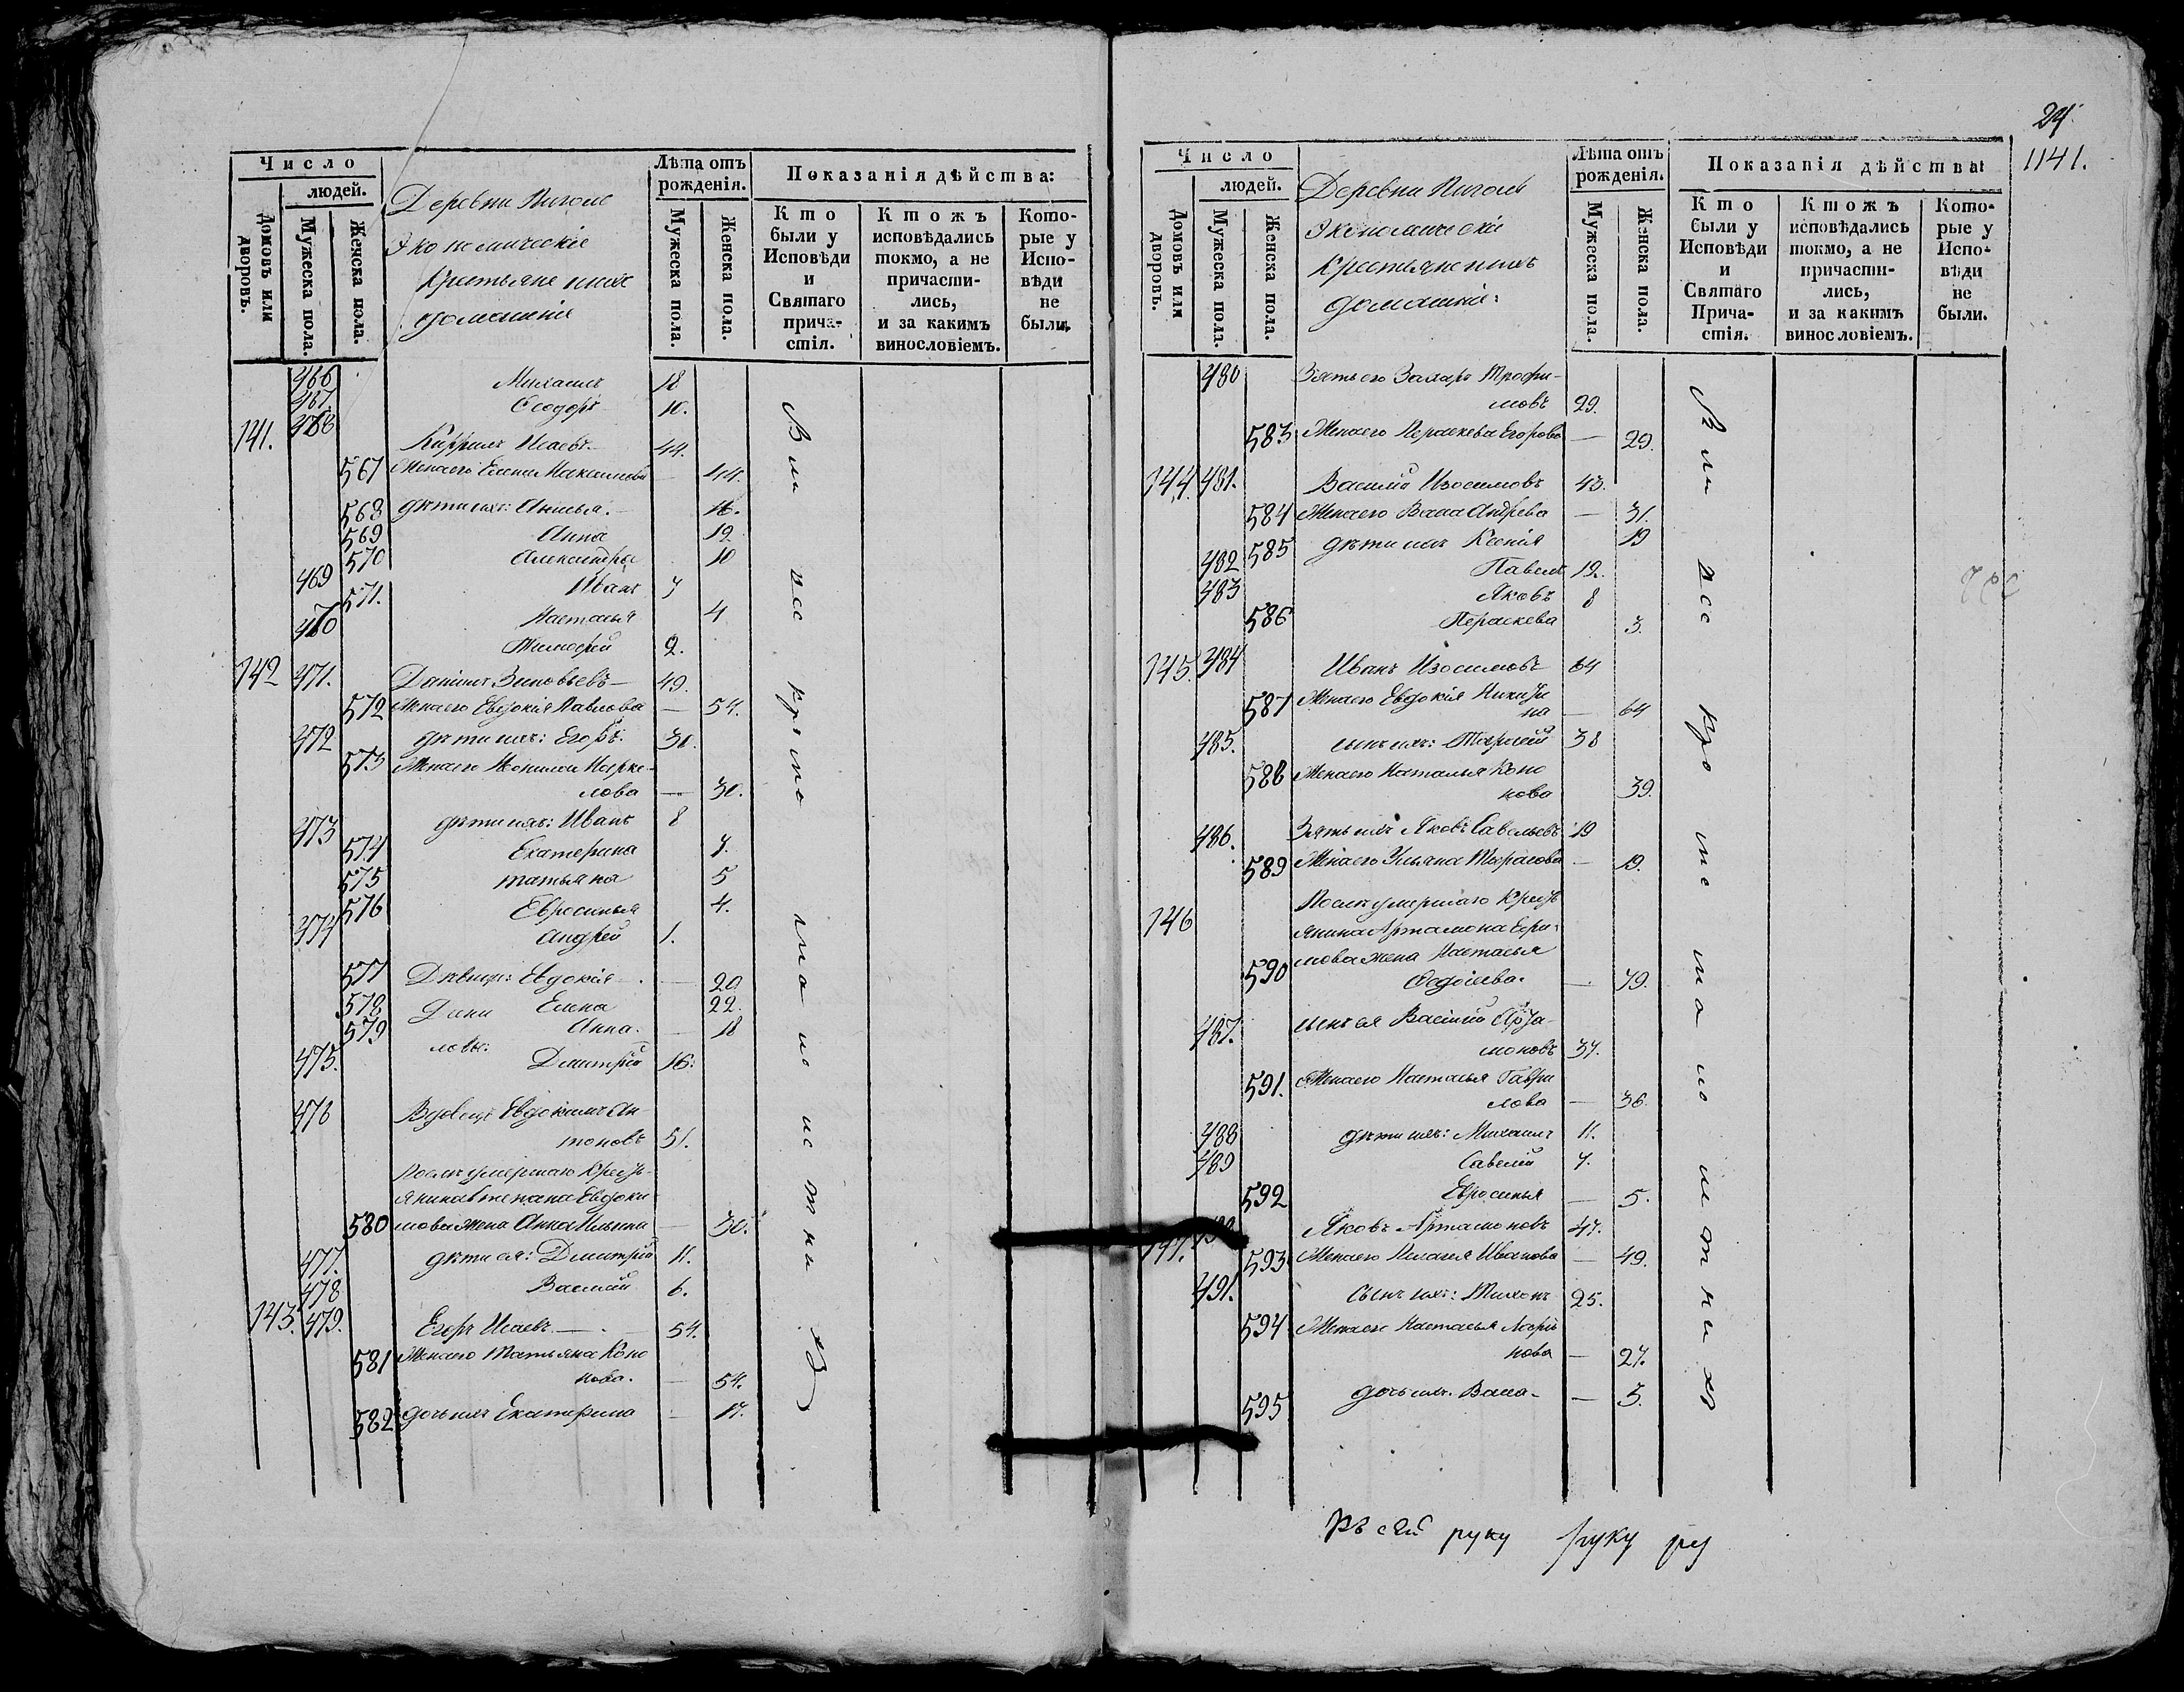 Число
людей.
Домовъ или дворовъ.
Мужеска пола.
Женска пола.
Деревни
Экономическіе
Крестьяне ихъ
домашніе
Лѣта отъ рожденія.
Мужеска пола.
Женска пола.
Показанія дѣйства:
Кто были у Исповѣди и Святаго причастія.
Ктожъ исповѣдались токмо, а не причастились, и за какимъ винословіемъ.
Которые у Исповѣди не были.
466 Михаилъ 18
467 Ѳеодоръ 10.
141. 468 Кириллъ Исаевъ 44.
567 Жена его Елена Максимова 44.
568 дѣти ихъ: Анисья 16.
569 Анна 12
570 Александра 10
469 Иванъ 7
571. Настасья 4
470 Тимофей 2.
142 471. Даніилъ Зиновьевъ 49.
572 Жена его Евдокія Павлова — 54.
472 дѣти ихъ: Егоръ 30.
573 Жена его
лова — 30.
473 дѣти ихъ: Иванъ 8
574 Екатерина 7.
575 татьяна 5
576 Евросинья 4.
474 Андрей 1.
577 Дѣвицы: Евдокія — 29
578 Елена 22.
579 Анна — 18
475. Дмитрій 16.
476 Вдовецъ Евдокимъ Ан-
тоновъ 51.
Послѣ умершаго Кресть-
янина Степана Евдоки
580 мова жена Анна Ильина — 30.
477. дѣти ея: Дмитрій 11.
478 Василій 6.
143. 479. Егоръ Исаевъ — 54.
581 Жена его Татьяна Коно
нова. — 54.
582 дочь ихъ Екатерина — 17.
24
1141.
Число
людей.
Домовъ или дворовъ.
Мужеска пола.
Женска пола.
Деревни
Экономическіе
Крестьяне ихъ
домашніе:
Лѣта отъ рожденія.
Мужеска пола.
Женска пола.
Показанія дѣйства:
Кто были у Исповѣди и Святаго Причастія.
Ктожъ исповѣдались токмо, а не причастились, и за какимъ винословіемъ.
Которые у Исповѣди не были.
480 Зять его Захаръ Трофи-
мовъ 29.
583 Жена его Пераскева Егорова — 29.
144. 481. Василій Изосимовъ 43.
584 Жена его Васа Андрева — 31.
585 дѣти ихъ Ксенія 19
482 Павелъ 12.
483 Яковъ 8
586 Пераскева 3.
145. 484 Иванъ Изосимовъ 64
587 Жена его Евдокія Никити
на — 64
485. сынъ ихъ: 38
588 Жена его Наталья Коно
нова 39.
486. Зять ихъ Яковъ Савельевъ 19
589 Жена его Ульяна Тарасова — 19.
146 Послѣ умершаго Кресть
янина Артамона Ефи-
мова жена Настасья
590 Ѳадѣева. — 79.
487. сынъ ея Василій Арта-
моновъ 37.
591. Жена его Настасья Гаври
лова — 36.
488 дѣти ихъ: Михаилъ 11.
489 Савелій 7.
592 Евросинья — 5.
147. Яковъ Артамоновъ 47.
593 Жена его Пелагея Иванова — 49.
491. Сынъ ихъ: Тихонъ 25.
594 Жена его Настасья
нова — 27.
595 дочь ихъ Васа — 3.
руку руку ру